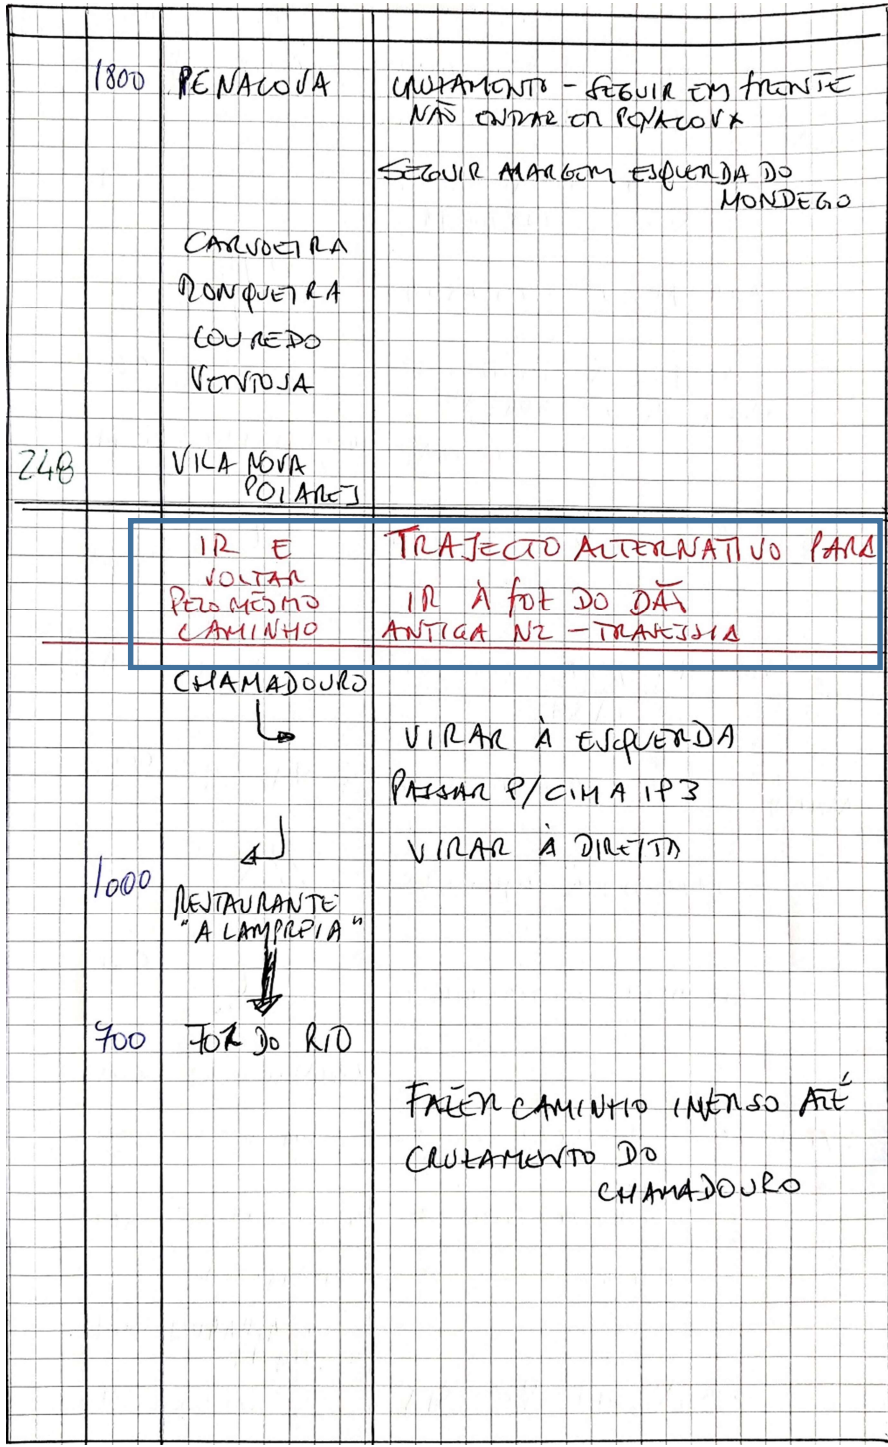 1800 PENACOVA CRUZAMENTO - SEGUIR EM FRENTE
NÃO ENTRAR EM PENACOVA
SEGUIR MARGEM ESQUERDA DO
MONDEGO
CARVOEIRA
RONQUEIRA
LOUREDO
VENTOSA
248 VILA NOVA
POIARES
IR E TRAJECTO ALTERNATIVO PARA
VOLTAR
PELO MESMO IR À FOZ DO DÃO
CAMINHO ANTIGA N2 - TRAVESSIA
CHAMADOURO
VIRAR À ESQUERDA
PASSAR P/ CIMA IP3
VIRAR À DIREITA
1000
RESTAURANTE
"A LAMPREIA"
700 FOZ DO RIO
FAZER CAMINHO INVERSO ATÉ
CRUZAMENTO DO
CHAMADOURO